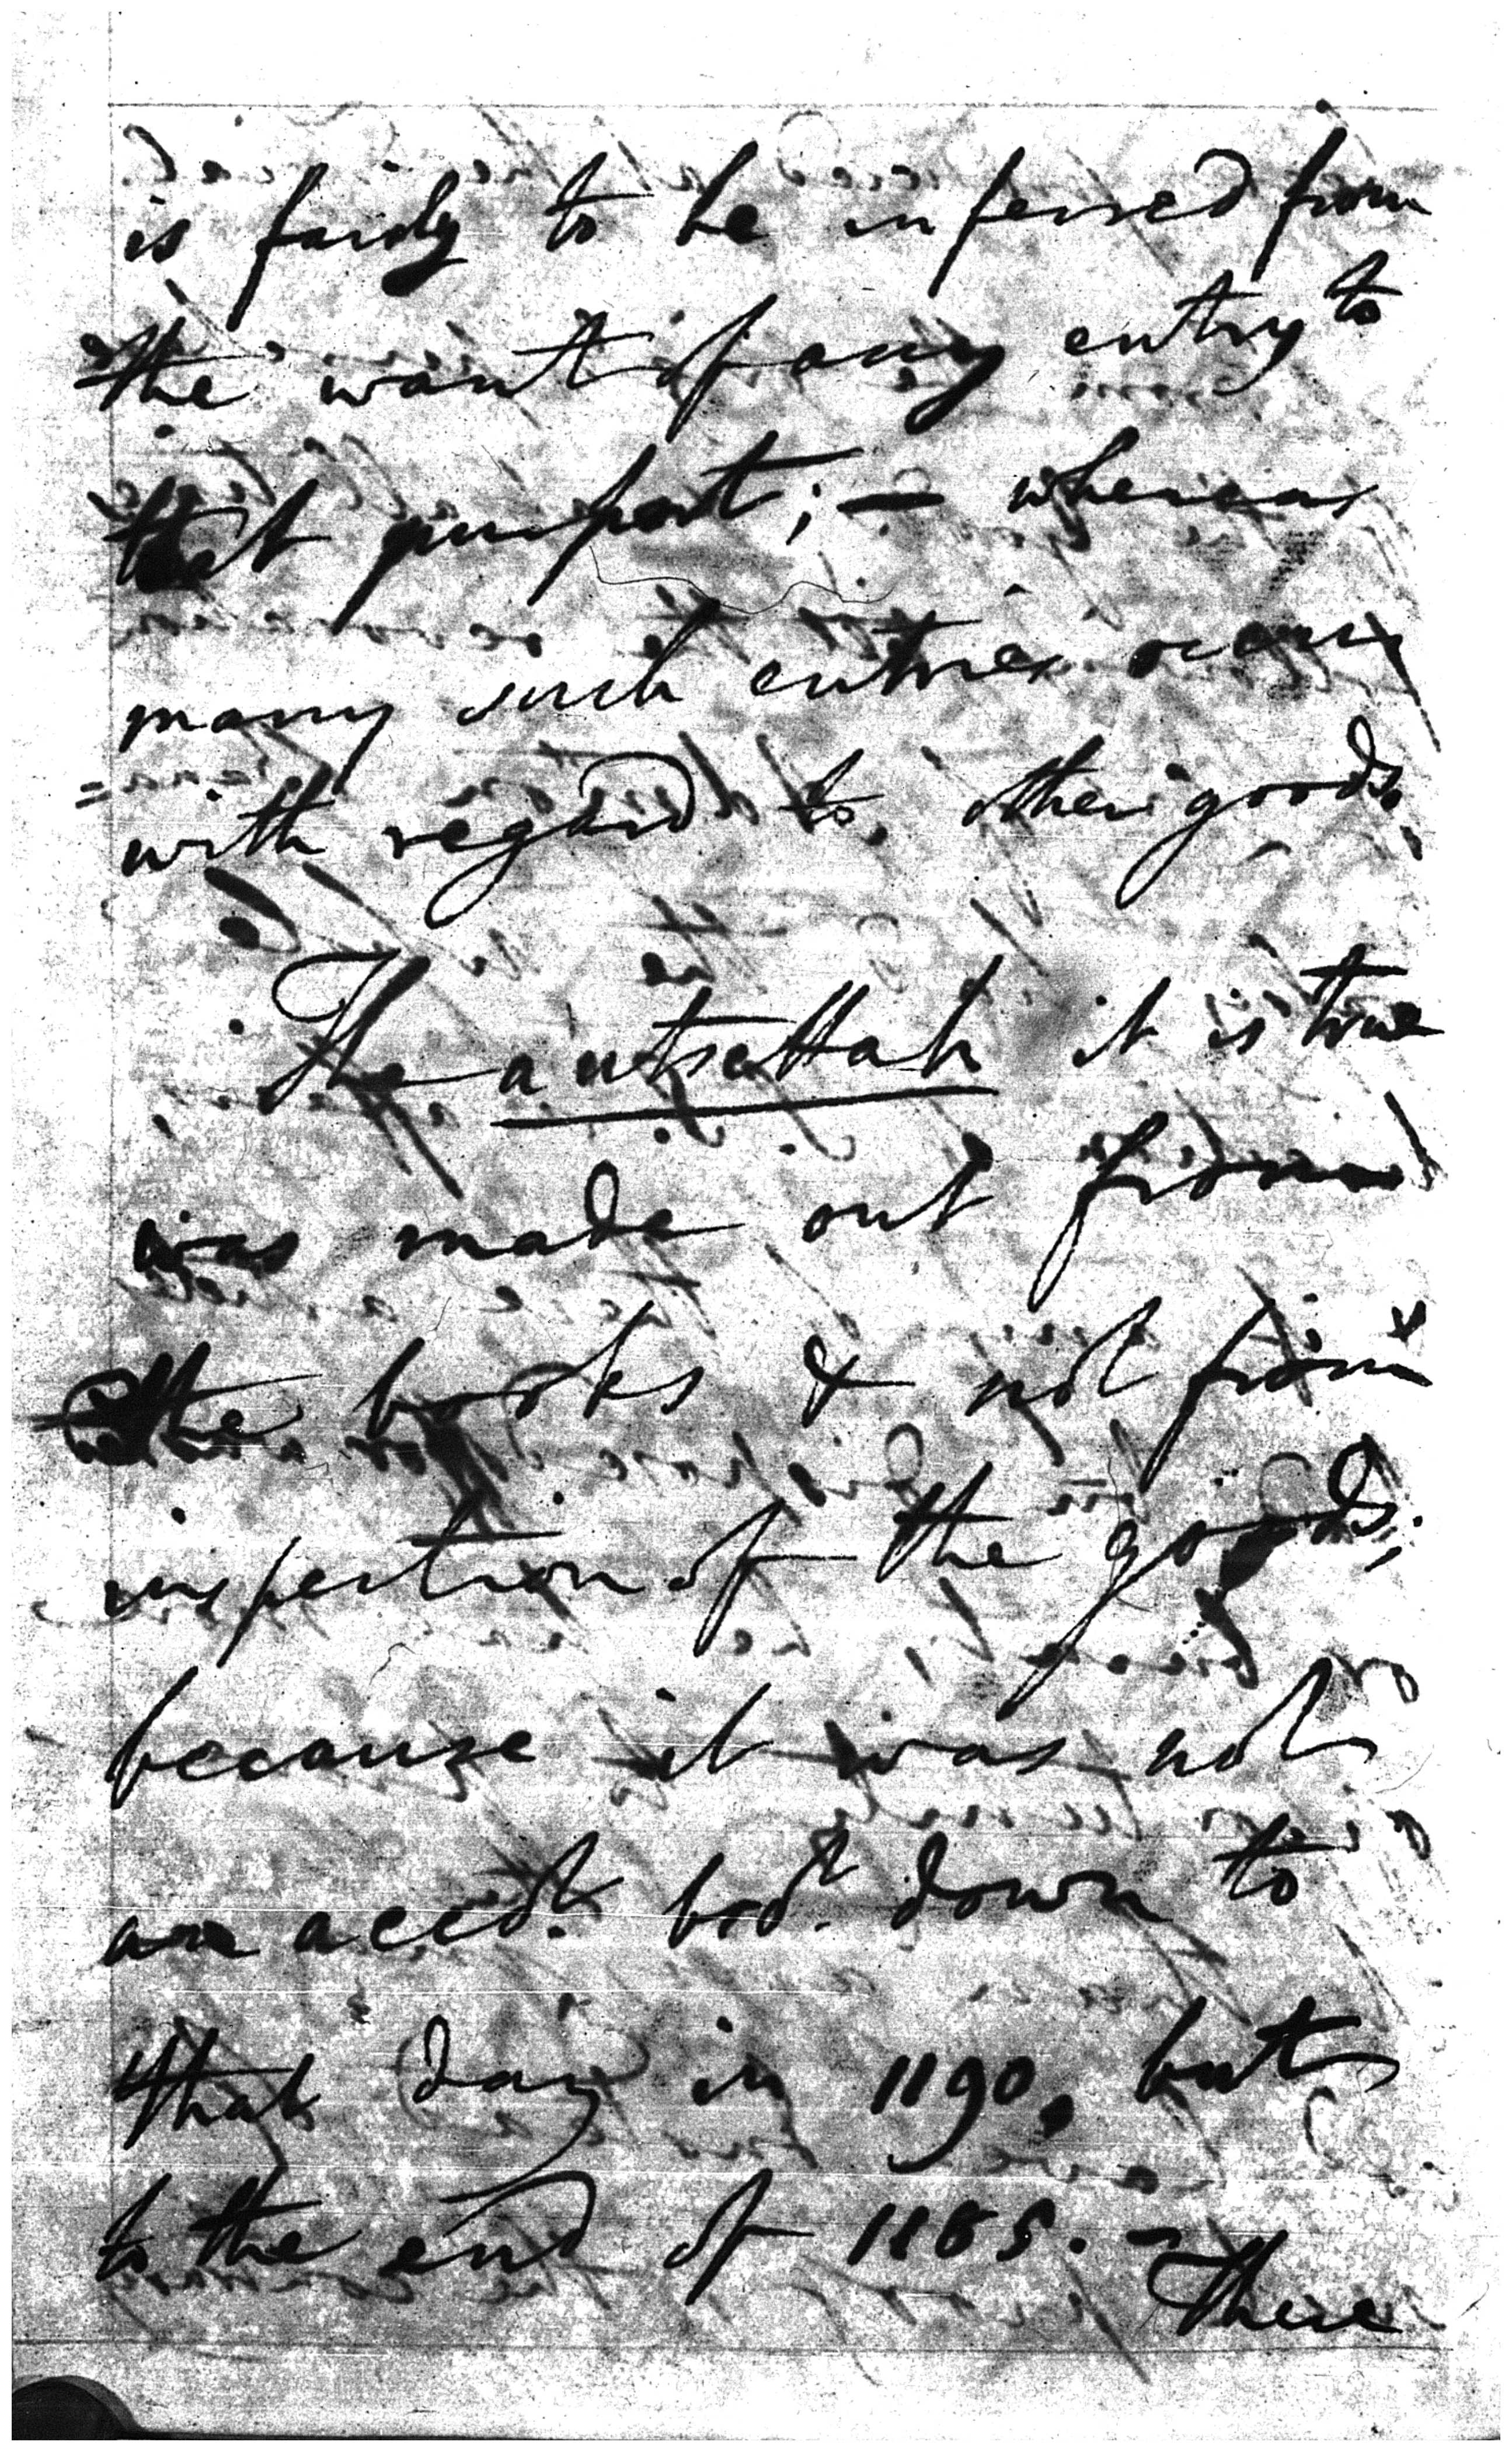 is fairly to be inferred from
the want of any entry to
that purport; — whereas
many such entries occur
with regard to other goods.
The autsettah it is true
was made out from
the books & not from
inspection of the goods;
because it was not
an accot. brot. down to
that day in 1190, but
to the end of 1185. –
There